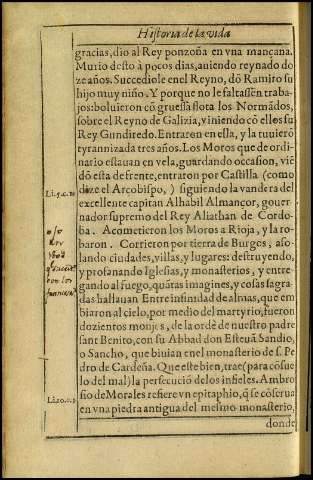 Historia de la vida
gracias, dio al Rey ponzoña en vna mançana.
Murio desto à pocos dias, auiendo reynado do
ze años. Succediole enel Reyno, dõ Ramiro su
hijo muy niño. Y porque no le faltassẽn traba-
jos: boluieron cõ gruessa flota los Normãdos,
sobre el Reyno de Galizia, viniendo cõ ellos su
Rey Gundiredo. Entraron en ella, y la tuuierõ
tyrannizada tres años. Los Moros que de ordi-
nario estauan en vela, guardando occasion, viẽ
dõ esta de frente, entraron por Castilla (como
Li. 5. c.
dize el Arcobispo, ) siguiendo la vandera del
excellente capitan Alhabil Almançor, gouer-
nador supremo del Rey Aliathan de Cordo-
ba. Acometieron los Moros a Rioja, y la ro-
baron. Corrieron por tierra de Burgos, aso-
lando ciudades, villas, y lugares: destruyendo,
y profanando Iglesias, y monasterios, y entre-
gando al fuego, quãtas imagines, y cosas sagra-
das hallauan Entre infinidad de almas, que em
biaron al cielo, por medio del martyrio, fueron
dozientos monjes, de la ordẽ de nuestro padre
sant Benito, con su Abbad don Esteuã Sandio,
o Sancho, que biuian enel monasterio de s. Pe
dro de Cardeña. Que este bien, trae (para cõsue
lo del mal) la persecuciõ de los infieles. Ambro
sio de Morales refiere vn epitaphio, q̃ se cõserua
Li. 20. c. 5
en vna piedra antigua del mesmo monasterio,
donde